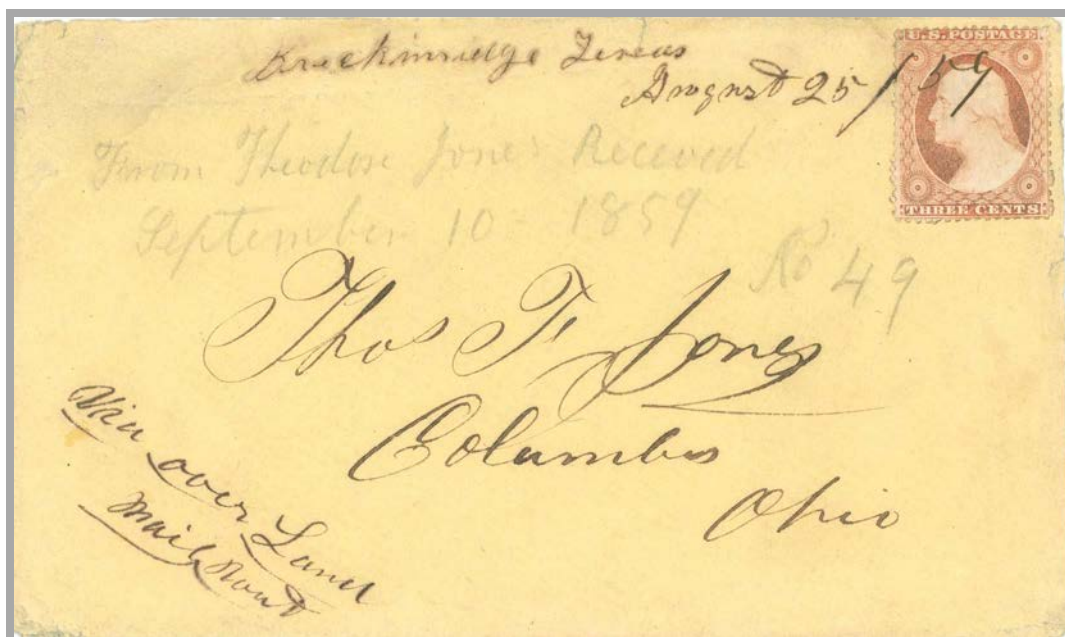 Breckinridge Texas
August 25 / 59
U.S. POSTAGE
THREE CENTS
From Theodore Jones Receved
September 10 - 1859
No 49
Thos F. Jones
Columbus
Ohio
Via
over Land
Mail Rout